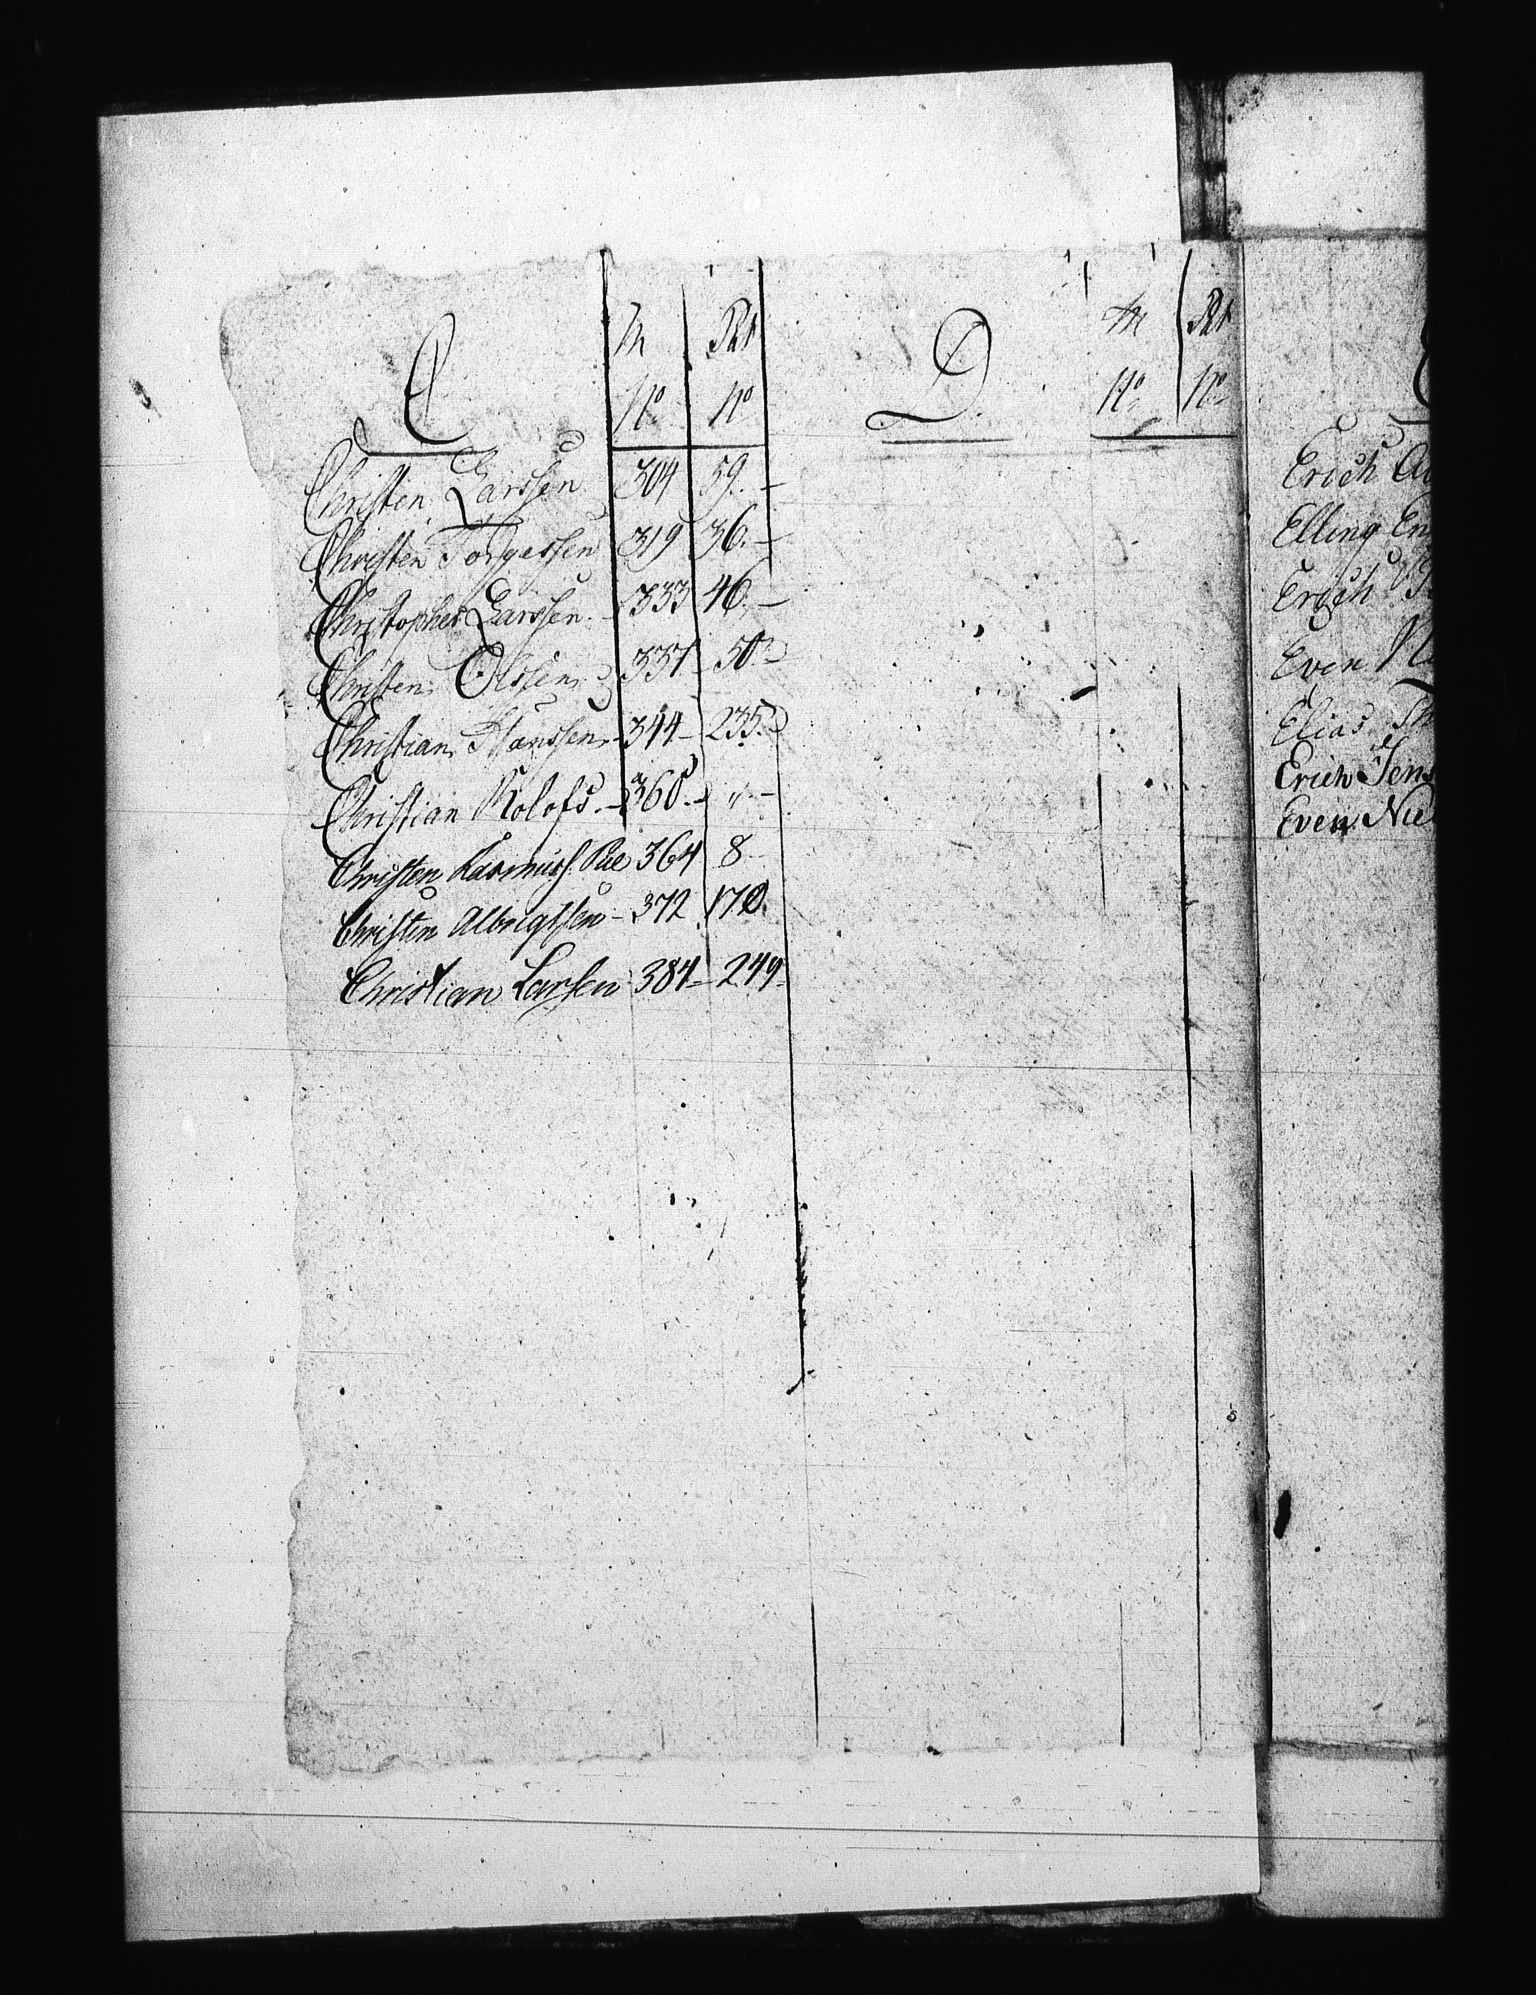 C
No No
Christen Larssen 304 59.
Christen Torgerssen 319 36.
Christopher Larssen 333 46.
Christen Olssen 337 50
Christian Hanssen 344 235.
Christian Rolofs. 360. "
Christen Rasmuss. 364 8
Christen Albregtsen 372 170.
Christian Larsen 384 249
D.
No No
Erich
Elling
Erich
Even
Elias
Erich Jens
Even Nie